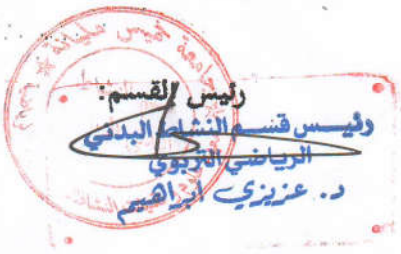 جامعة خميس مليانة
رئيس القسم:
رئيس قسم النشاط البدني
الرياضي التربوي
د. عزيزي ابراهيم